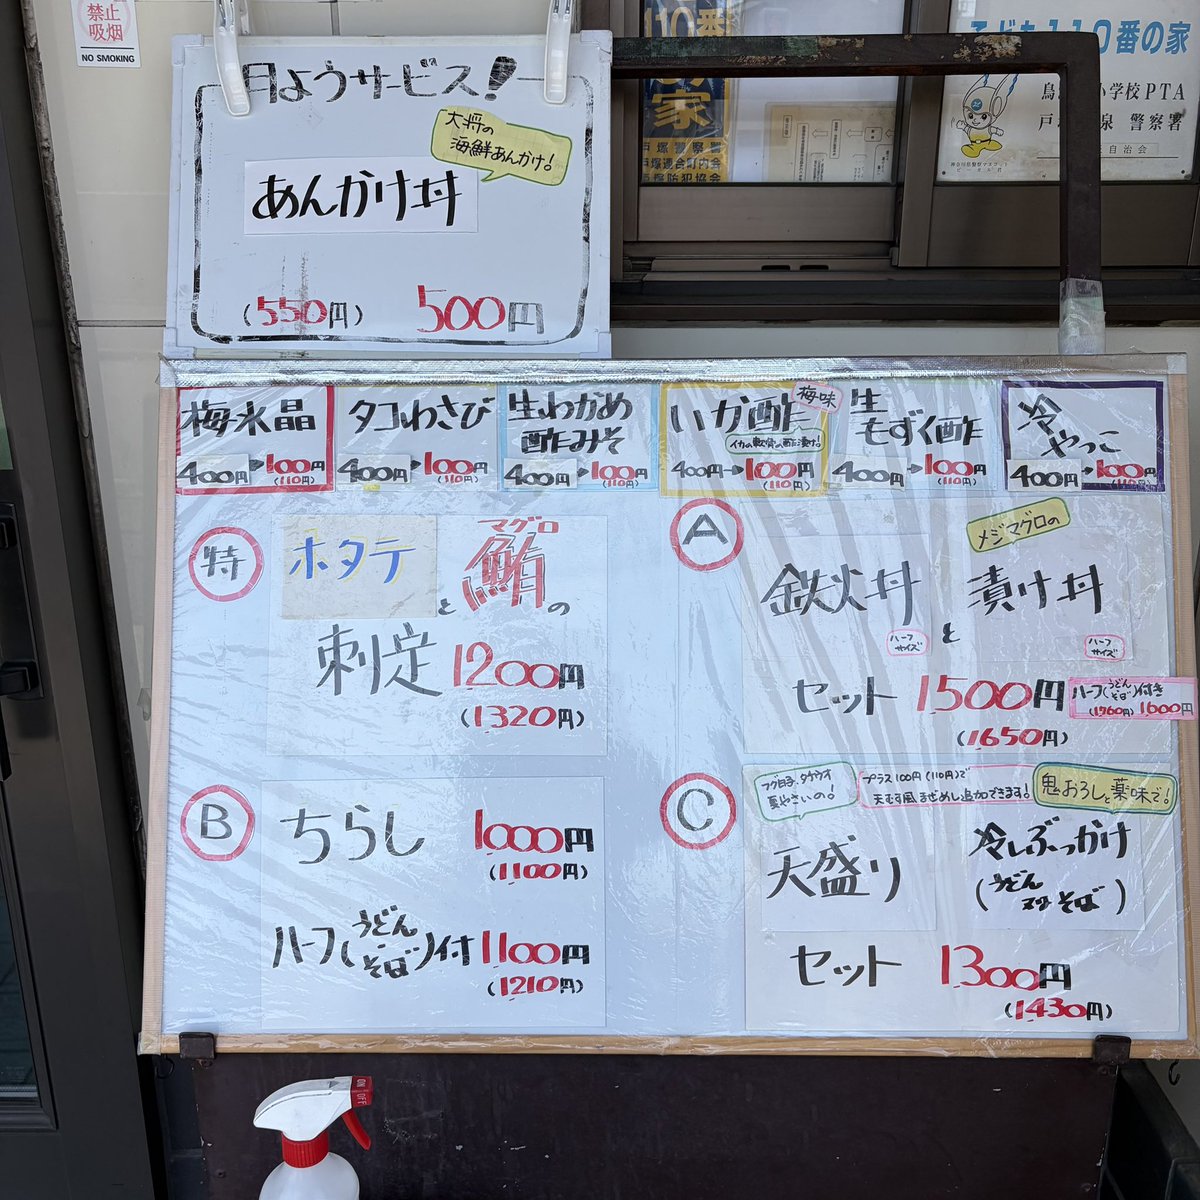 禁止
吸烟
NO SMOKING
110番
の
家
戸塚警察署
戸塚連合町内会
戸塚防犯協会
こども110番の家
小学校PTA
戸塚 泉 警察署
自治会
月ようサービス!
大将の
海鮮あんかけ!
あんかけ丼
(550円) 500円
梅水晶
400円→100円
(110円)
タコわさび
400円→100円
(110円)
生わかめ
酢みそ
400円→100円
(110円)
いか酢
梅味
イカの軟骨の酢漬け!
400円→100円
(110円)
生
もずく酢
400円→100円
(110円)
冷
やっこ
400円→100円
(110円)
特
ホタテと鮪の
マグロ
刺定 1200円
(1320円)
A
メジマグロの
鉄火丼と漬け丼
ハーフ
サイズ
ハーフ
サイズ
セット 1500円
(1,650円)
ハーフ(うどん
そば)付き
(1,760円) 1,600円
B
ちらし 1,000円
(1,100円)
ハーフ(うどん
そば)付 1,100円
(1,210円)
C
夏やさいの!
プラス100円(110円)で
天むす風まぜめし追加できます!
鬼おろしと薬味で!
天盛り
冷しぶっかけ
(うどん
又は そば)
セット 1300円
(1,430円)
ON
OFF